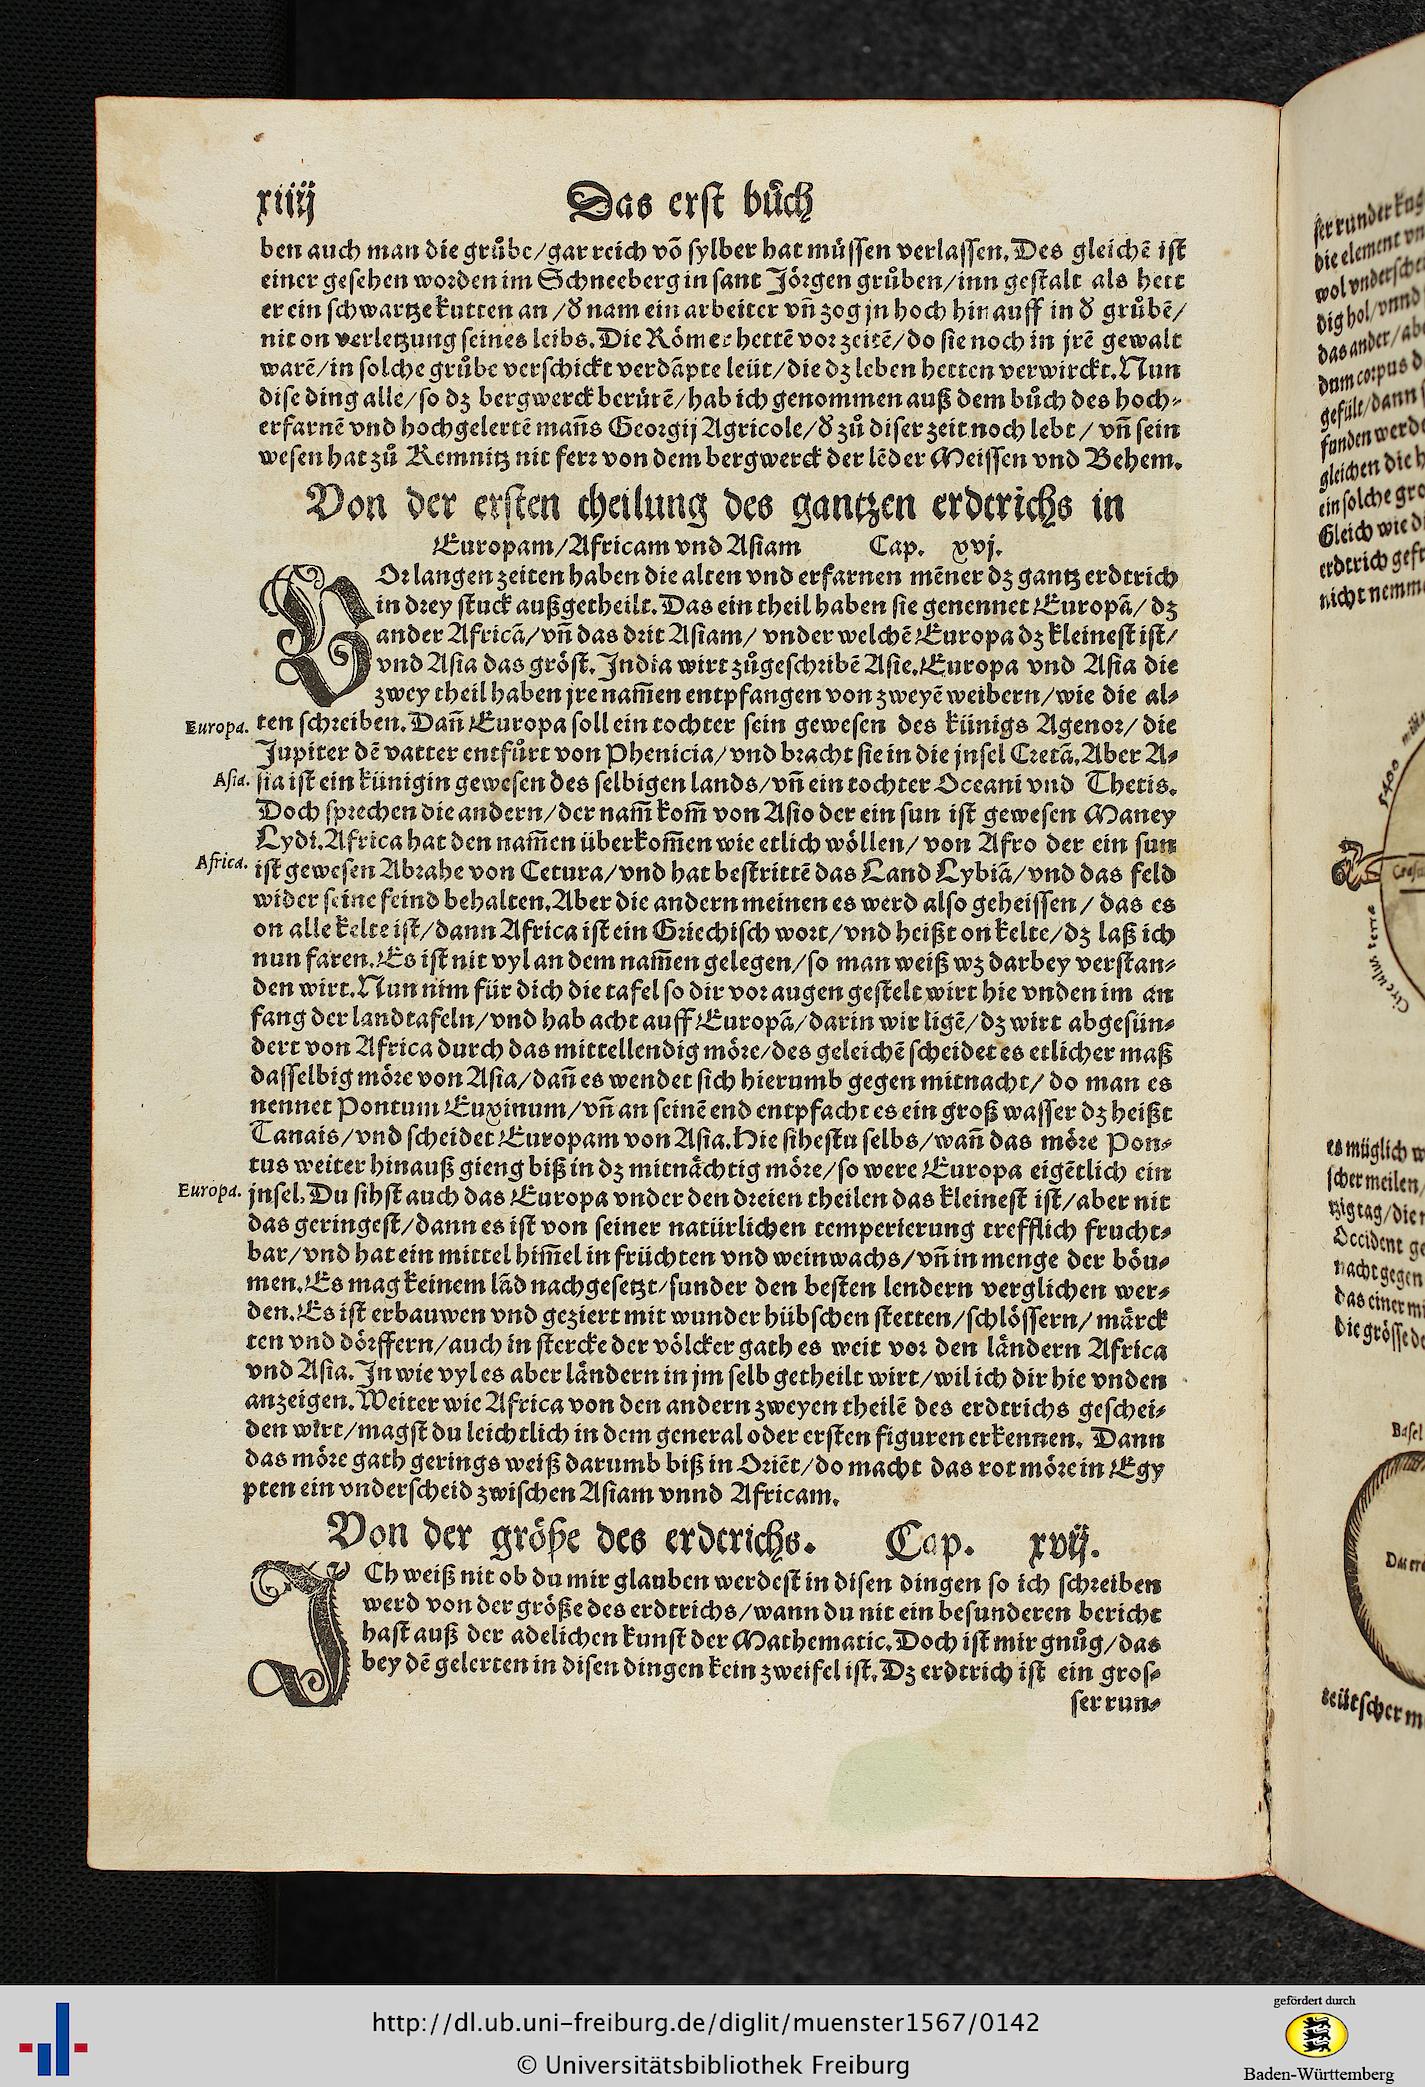 xiiij
Das erst bůch
ben auch man die grůbe/gar reich võ sylber hat müssen verlassen. Des gleichẽ ist
einer gesehen worden im Schneeberg in sant Jörgen grůben/inn gestalt als hett
er ein schwartze kutten an/ď nam ein arbeiter vñ zog jn hoch hinauff in ď grůbẽ/
nit on verletzung seines leibs. Die Römer hettẽ vor zeitẽ/do sie noch in jrẽ gewalt
warẽ/in solche grůbe verschickt verdãpte leüt/die dz leben hetten verwirckt. Nun
dise ding alle/so dz bergwerck berürẽ/hab ich genommen auß dem bůch des hoch-
erfarnẽ vnd hochgelertẽ mañs Georgij Agricole/ď zů diser zeit noch lebt/vñ sein
wesen hat zů Kemnitz nit ferr von dem bergwerck der lẽder Meissen vnd Behem.
Von der ersten theilung des gantzen erdtrichs in
Europam/Africam vnd Asiam Cap. xvj.
VOr langen zeiten haben die alten vnd erfarnen mẽner dz gantz erdtrich
in drey stuck außgetheilt. Das ein theil haben sie genennet Europã/dz
ander Africã/vñ das drit Asiam/vnder welchẽ Europa dz kleinest ist/
vnd Asia das gröst. India wirt zůgeschribẽ Asie. Europa vnd Asia die
zwey theil haben jre nam̃en entpfangen von zweyẽ weibern/wie die al-
Europa. ten schreiben. Dañ Europa soll ein tochter sein gewesen des künigs Agenor/die
Jupiter dẽ vatter entfůrt von Phenicia/vnd bracht sie in die jnsel Cretã. Aber A-
Asia. sia ist ein künigin gewesen des selbigen lands/vñ ein tochter Oceani vnd Thetis.
Doch sprechen die andern/der nam̃ kom̃ von Asio der ein sun ist gewesen Maney
Lydi. Africa hat den nam̃en überkom̃en wie etlich wöllen/von Afro der ein sun
Africa. ist gewesen Abrahe von Cetura/vnd hat bestrittẽ das Land Lybiã/vnd das feld
wider seine feind behalten. Aber die andern meinen es werd also geheissen/das es
on alle kelte ist/dann Africa ist ein Griechisch wort/vnd heißt on kelte/dz laß ich
nun faren. Es ist nit vyl an dem nam̃en gelegen/so man weiß wz darbey verstan-
den wirt. Nun nim für dich die tafel so dir vor augen gestelt wirt hie vnden im an
fang der landtafeln/vnd hab acht auff Europã/darin wir ligẽ/dz wirt abgesün-
dert von Africa durch das mittellendig möre/des geleichẽ scheidet es etlicher maß
dasselbig möre von Asia/dañ es wendet sich hierumb gegen mitnacht/do man es
nennet Pontum Euxinum/vñ an seinẽ end entpfacht es ein groß wasser dz heißt
Tanais/vnd scheidet Europam von Asia. Hie sihestu selbs/wañ das möre Pon-
tus weiter hinauß gieng biß in dz mitnächtig möre/so were Europa eigẽtlich ein
Europa. jnsel. Du sihst auch das Europa vnder den dreien theilen das kleinest ist/aber nit
das geringest/dann es ist von seiner natürlichen temperierung trefflich frucht-
bar/vnd hat ein mittel him̃el in früchten vnd weinwachs/vñ in menge der böu-
men. Es mag keinem lãd nachgesetzt/sunder den besten lendern verglichen wer-
den. Es ist erbauwen vnd geziert mit wunder hübschen stetten/schlössern/märck
ten vnd dörffern/auch in stercke der völcker gath es weit vor den ländern Africa
vnd Asia. In wie vyl es aber ländern in jm selb getheilt wirt/wil ich dir hie vnden
anzeigen. Weiter wie Africa von den andern zweyen theilẽ des erdtrichs geschei-
den wirt/magst du leichtlich in dem general oder ersten figuren erkennen. Dann
das möre gath gerings weiß darumb biß in Oriẽt/do macht das rot möre in Egy
pten ein vnderscheid zwischen Asiam vnnd Africam.
Von der größe des erdtrichs. Cap. xvij.
ICh weiß nit ob du mir glauben werdest in disen dingen so ich schreiben
werd von der größe des erdtrichs/wann du nit ein besunderen bericht
hast auß der adelichen kunst der Mathematic. Doch ist mir gnůg/das
bey dẽ gelerten in disen dingen kein zweifel ist. Dz erdtrich ist ein gros-
ser run-
ser runder kug
die element vn
wol vnderschei
dig hol/vnnd
das ander/abe
dum corpus d
gefült/dann
funden werde
gleichen die h
ein solche gro
Gleich wie di
erdtrich gest
nicht nemm
5400
Circulus terre
es müglich w
scher meilen/
tzig tag/die
Occident ge
nacht gegen
das einer mi
die grösse de
Basel
Das erd
teütscher m
http://dl.ub.uni-freiburg.de/diglit/muenster1567/0142
© Universitätsbibliothek Freiburg
gefördert durch
Baden-Württemberg